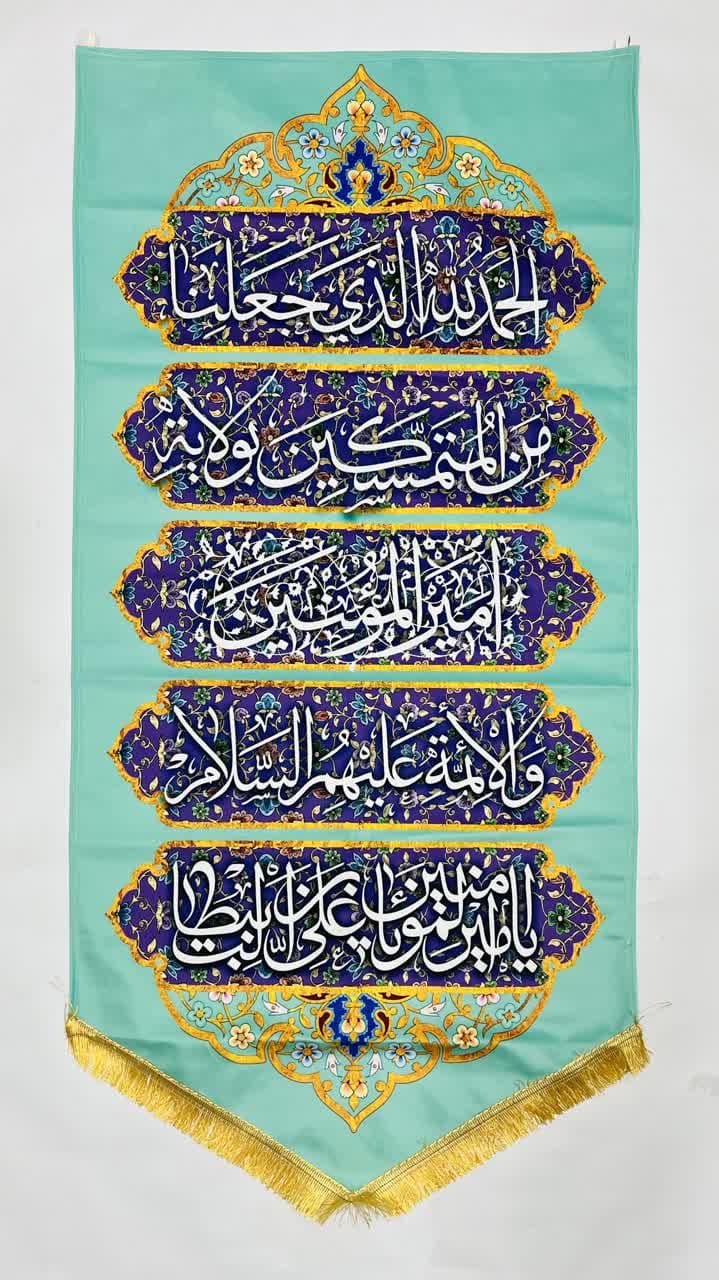 الحمدُ للّٰه الّذي جَعَلنا
مِن المُتمسّكين بولاية
امیرالمؤمنین
وَالأئمّة عَلیهمُ السّلام
یا امیرالمومنین علی بن ابیطالب